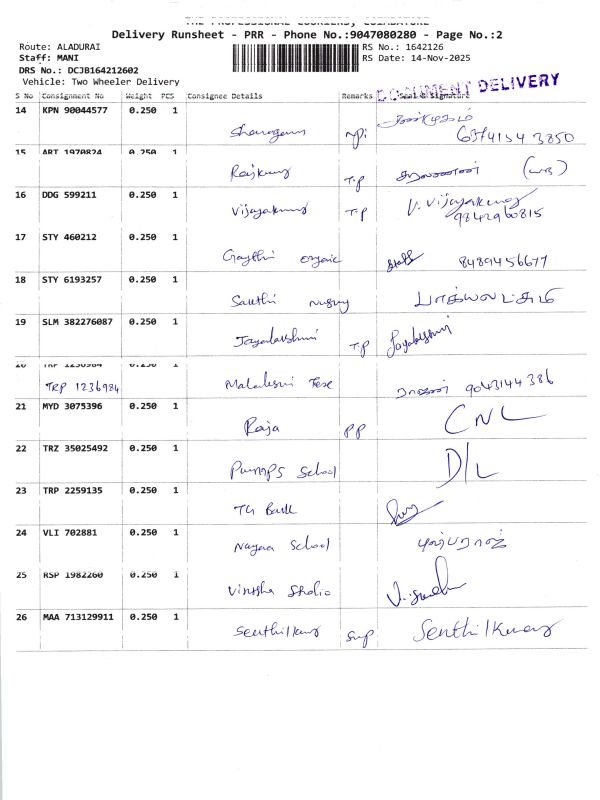 THE PROFESSIONAL COURIERS, COIMBATORE
Delivery Runsheet - PRR - Phone No.:9047080280 - Page No.:2
Route: ALADURAI RS No.: 1642126
Staff: MANI RS Date: 14-Nov-2025
DRS No.: DCJB164212602
Vehicle: Two Wheeler Delivery
DOCUMENT DELIVERY
S No Consignment No Weight PCS Consignee Details Remarks Seal & Signature
14 KPN 90044577 0.250 1
6374154 3850
15 ART 1970824 0.250 1 Rajkumar T.P சரவணன்
16 DDG 599211 0.250 1 Vijayakumar T.P V. Vijayakumar
9842960815
17 STY 460212 0.250 1 Gayathri organic Staff 8489456677
18 STY 6193257 0.250 1 Sakthi பாக்கியலட்சுமி
19 SLM 382276087 0.250 1 Jayalakshmi T.P Jayalakshmi
20 TRP 1236984 0.250 1
TRP 1236984 9043144 386
21 MYD 3075396 0.250 1 Raja PP CNL
22 TRZ 35025492 0.250 1 School D/L
23 TRP 2259135 0.250 1 Bank
24 VLI 702881 0.250 1 School
25 RSP 1982260 0.250 1 Studio
26 MAA 713129911 0.250 1 Senthilkumar Senthilkumar